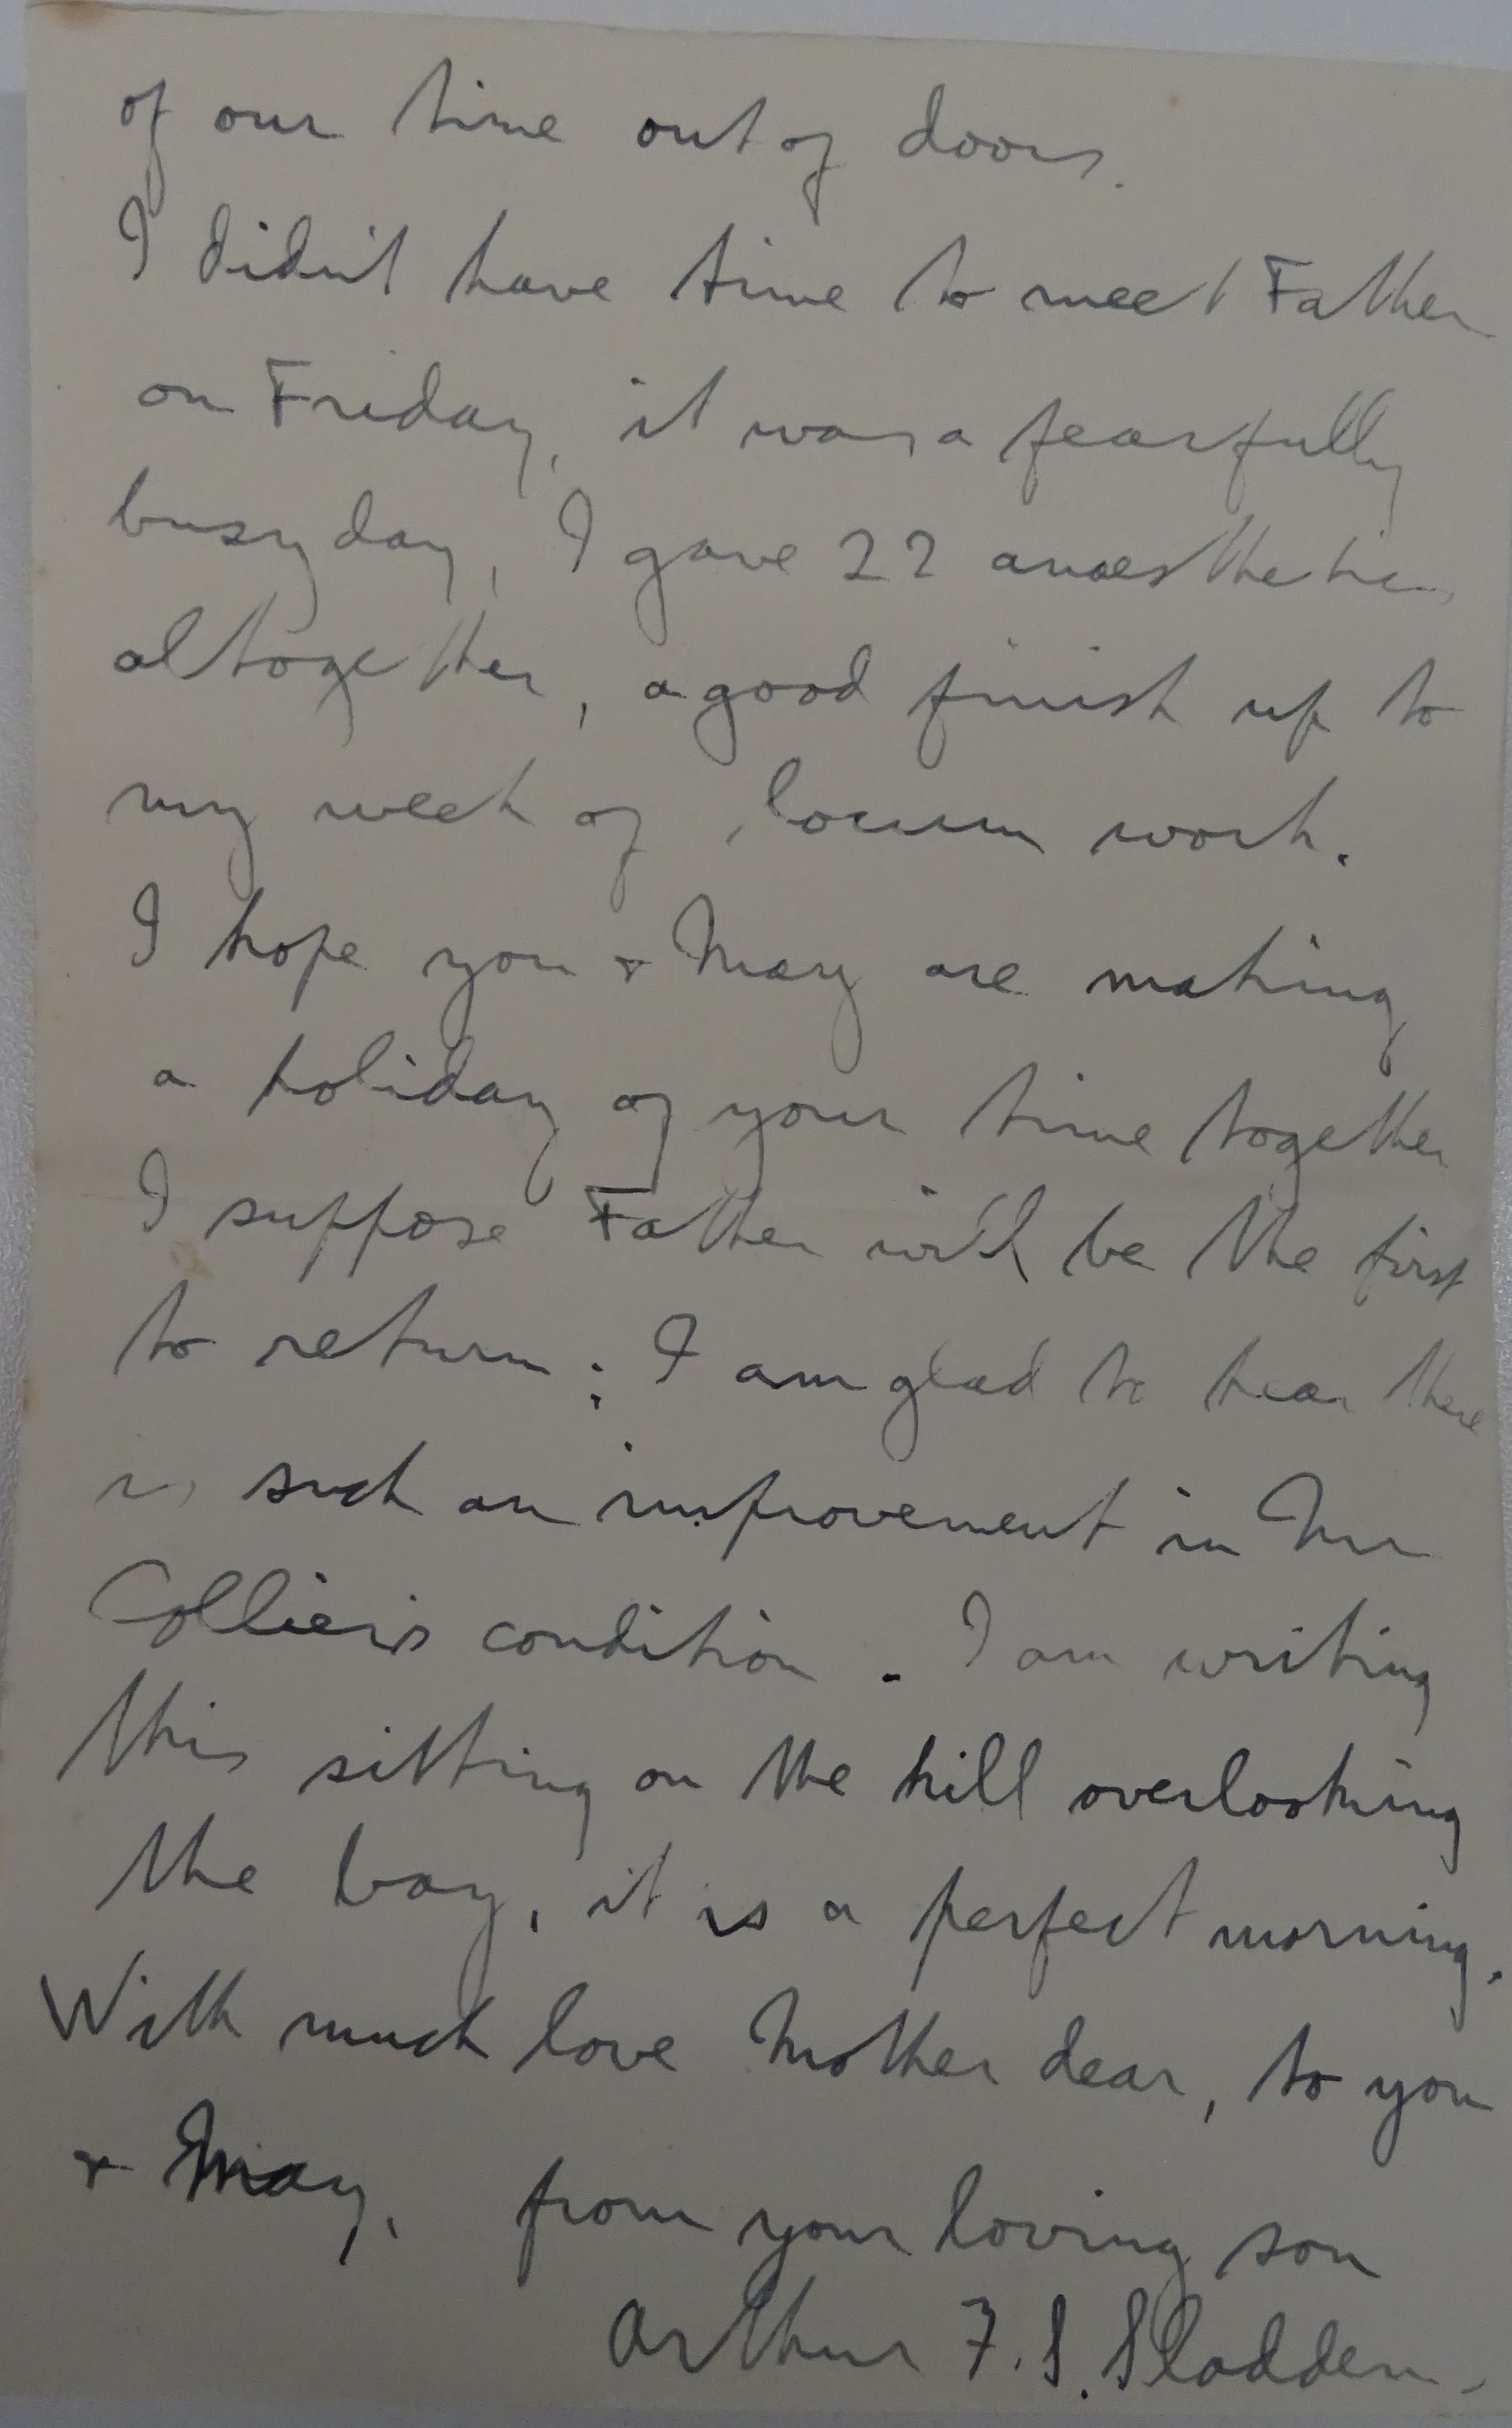 of our time out of doors.
I didn't have time to meet Father
on Friday, it was a fearfully
busy day, I gave 22 anaesthetics
altogether, a good finish up to
my week of locum work.
I hope you & May are making
a holiday of your time together
I suppose Father will be the first
to return; I am glad to hear there
is such an improvement in Mr
Collier's condition. I am writing
this sitting on the hill overlooking
the bay, it is a perfect morning.
With much love Mother dear, to you
& May, from your loving son
Arthur F. S. Sladden.